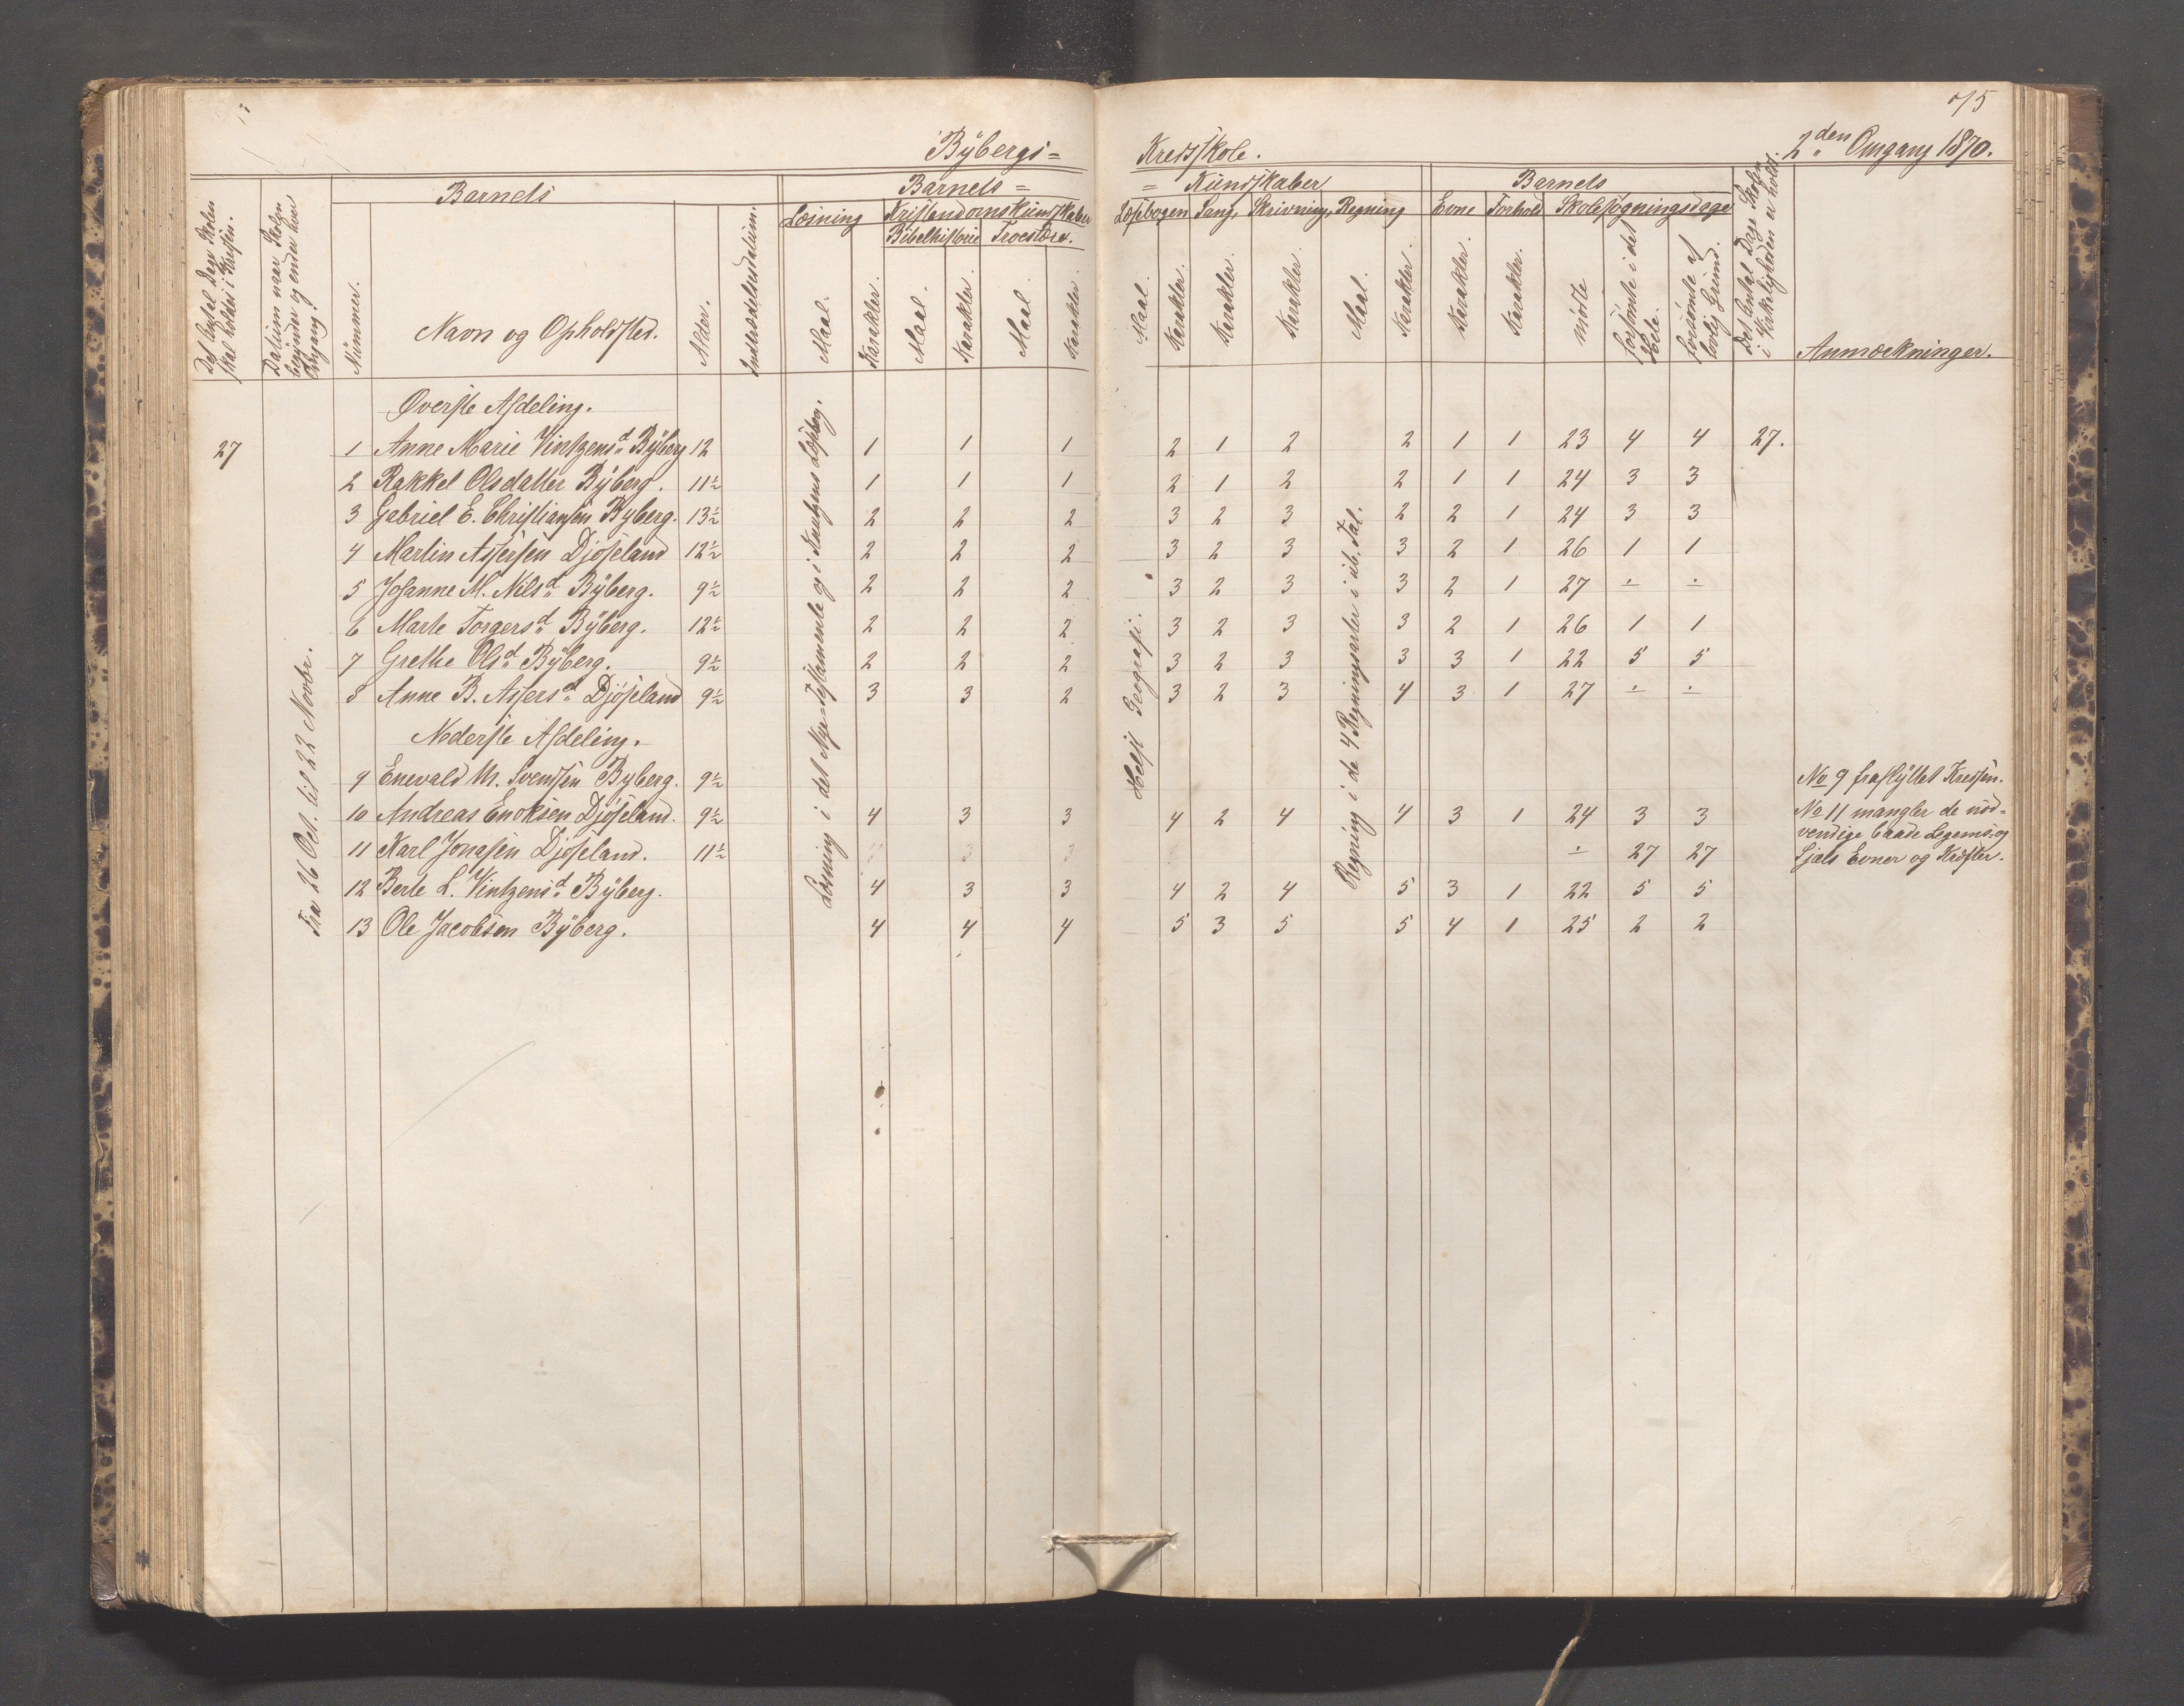 75
Bÿbergs= Kredsskole. 2den Omgang 1870.
Det Antal Dage Skolen skal holdes i Kredsen.
Datum naar Skolen begynder og ender hver Omgang.
Barnets
Nummer.
Navn og Opholdssted.
Alder.
Indtrædelsesdatum.
Barnets= =Kundskaber
Læsning Kristendomskundskaber Læsebogen Sang, Skrivning, Regning
Bibelhistorie Troeslære.
Maal. Karakter. Maal. Karakter. Maal. Karakter. Maal. Karakter. Karakter. Karakter. Maal. Karakter.
Barnets
Evne Forhold Skolesøgningsdage
Karakter. Karakter. mødte forsømte i det Hele. forsømte af lovlig Grund.
Det Antal Dage Skolen i Virkeligheden er holdt.
Anmærkninger.
Fra 26 Oct. til 22 Novbr.
Læsning i det Nye=Testamente og i Knutzens Læsebog.
Helst Geografi.
Regning i de 4 Regningsarter i ub. Tal.
Øverste Afdeling.
27 1 Anne Marie Vintzensd. Bÿberg 12 1 1 1 2 1 2 2 1 1 23 4 4 27.
2 Rakkel Olsdatter Bÿberg. 11½ 1 1 1 2 1 2 2 1 1 24 3 3
3 Gabriel E. Christiansen Byberg. 13½ 2 2 2 3 2 3 2 2 1 24 3 3
4 Martin Assersen Djøseland 12½ 2 2 2 3 2 3 3 2 1 26 1 1
5 Johanne M. Nilsd. Bÿberg. 9½ 2 2 2 3 2 3 3 2 1 27 ÷ ÷
6 Marte Torgersd. Bÿberg. 12½ 2 2 2 3 2 3 3 2 1 26 1 1
7 Grethe Olsd. Bÿberg. 9½ 2 2 2 3 2 3 3 3 1 22 5 5
8 Anne B. Assersd. Djøseland 9½ 3 3 2 3 2 3 4 3 1 27 ÷ ÷
Nederste Afdeling.
9 Enevald M. Svendsen Byberg. 9½ No 9 fraflÿttet Kredsen.
10 Andreas Enoksen Djøseland. 9½ 4 3 3 4 2 4 4 3 1 24 3 3 No 11 mangler de nød=
11 Karl Jonasen Djøseland. 11½ ÷ 27 27 vendige baade Legems og
Sjæls Evner og Kræfter.
12 Berte L. Vintzensd. Bÿberg. 4 3 3 4 2 4 5 3 1 22 5 5
13 Ole Jacobsen Bÿberg. 4 4 4 5 3 5 5 4 1 25 2 2